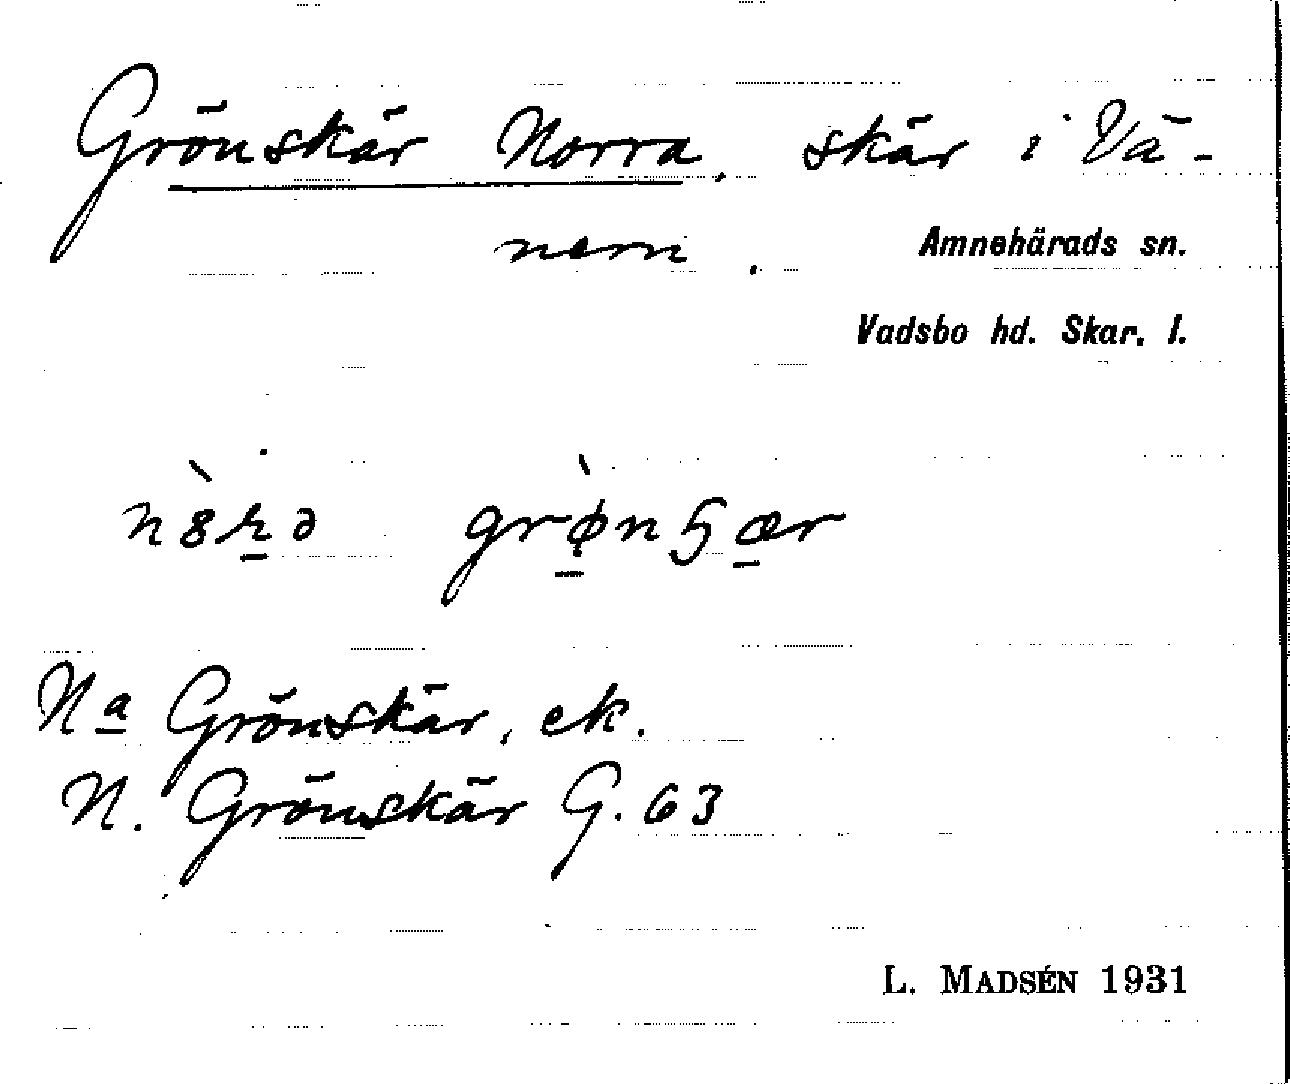 Grönskär Norra, skär i Vä-
nern.
Amnehärads sn.
Vadsbo hd. Skar. l.
grø̀nɧær
Na Grönskär, ek.
N. Grönskär G. 63
L. MADSÉN 1931